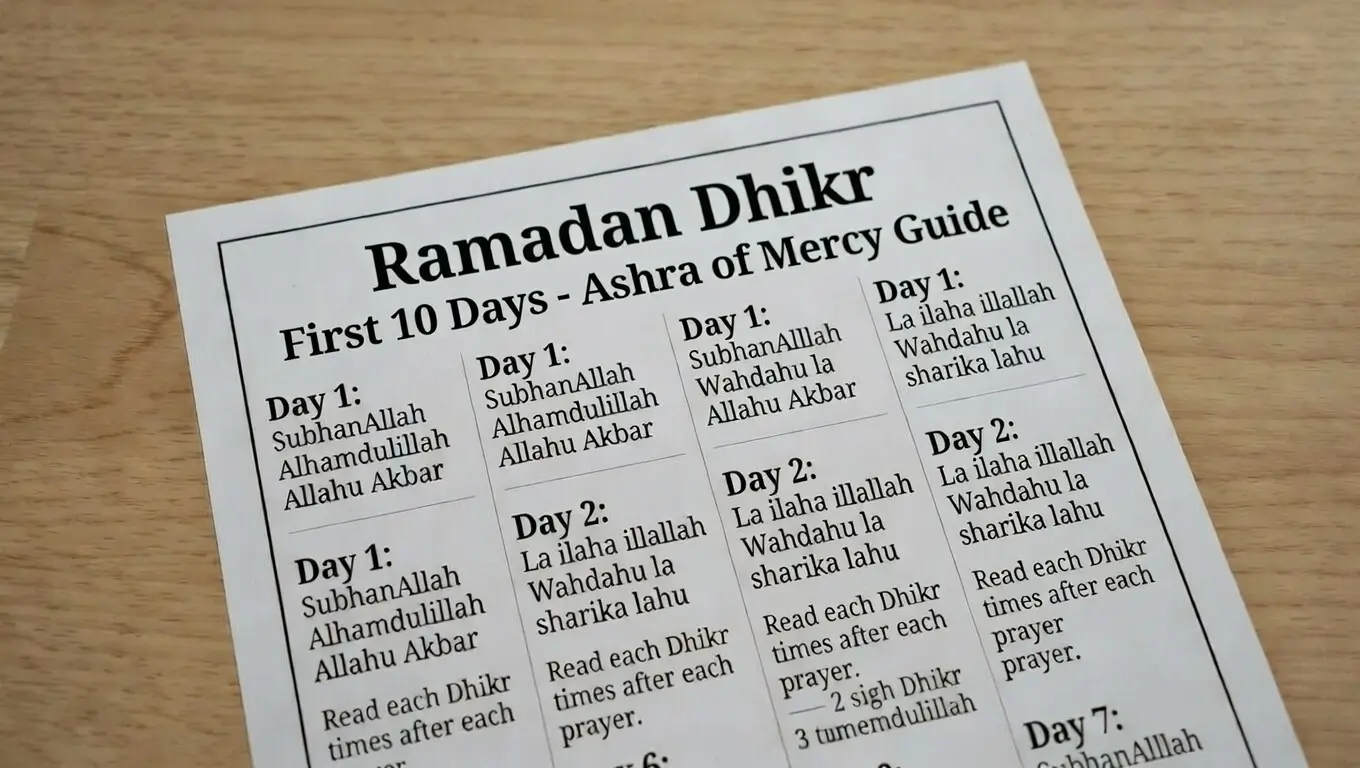 Ramadan Dhikr
First 10 Days - Ashra of Mercy Guide
Day 1:
SubhanAllah
Alhamdulillah
Allahu Akbar
Day 1:
SubhanAllah
Alhamdulillah
Allahu Akbar
Read each Dhikr
times after each
Day 1:
SubhanAllah
Alhamdulillah
Allahu Akbar
Day 2:
La ilaha illallah
Wahdahu la
sharika lahu
Read each Dhikr
times after each
prayer.
6:
Day 1:
SubhanAlllah
Wahdahu la
Allahu Akbar
Day 2:
La ilaha illallah
Wahdahu la
sharika lahu
Read each Dhikr
times after each
prayer.
— 2 sigh Dhikr
3 tumemdulillah
Day 1:
La ilaha illallah
Wahdahu la
sharika lahu
Day 2:
La ilaha illallah
Wahdahu la
sharika lahu
Read each Dhikr
times after each
prayer
prayer.
Day 7:
SubhanAlllah